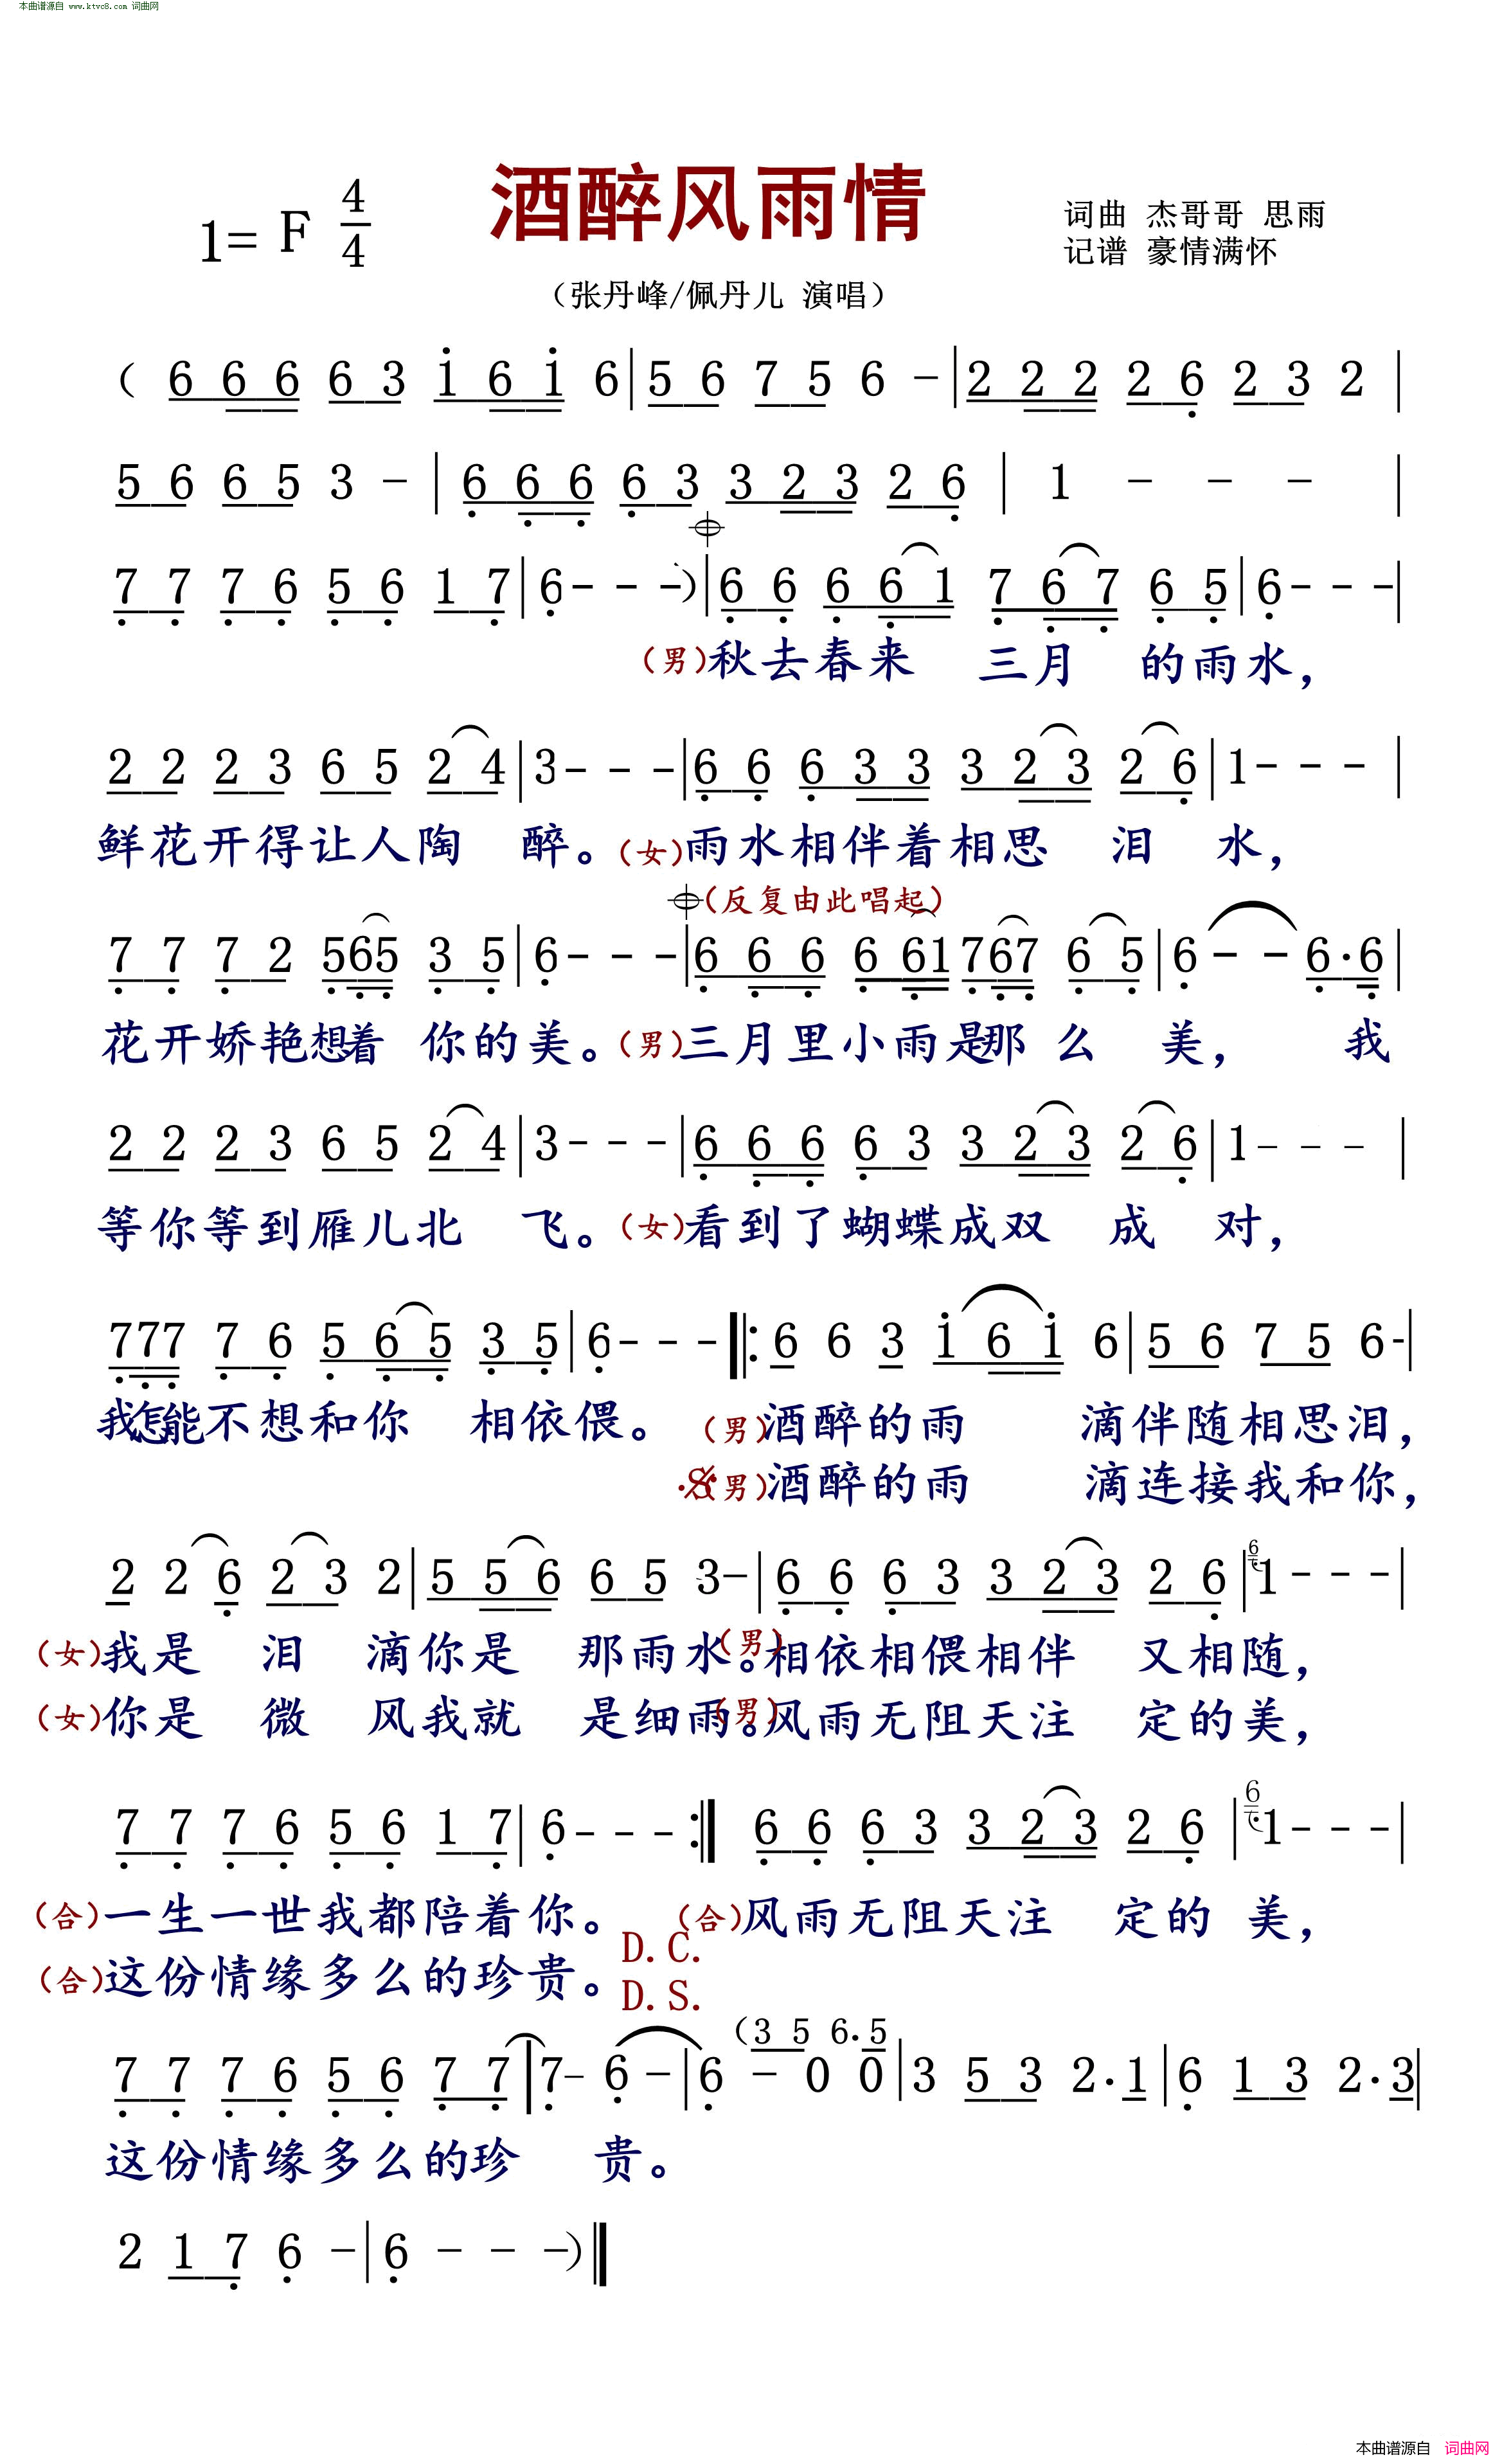 本曲谱源自 www.ktvc8.com 词曲网
酒醉风雨情
1= F 4/4
词曲 杰哥哥 思雨
记谱 豪情满怀
（张丹峰/佩丹儿 演唱）
( 6 6 6 6 3 i 6 i 6 | 5 6 7 5 6 - | 2 2 2 2 6 2 3 2 |
5 6 6 5 3 - | 6 6 6 6 3 3 2 3 2 6 | 1 - - - |
7 7 7 6 5 6 1 7 | 6 - - - ) | 6 6 6 6 1 7 6 7 6 5 | 6 - - - |
（男）秋去春来 三月 的雨水，
2 2 2 3 6 5 2 4 | 3 - - - | 6 6 6 3 3 3 2 3 2 6 | 1 - - - |
鲜花开得让人陶 醉。（女）雨水相伴着相思 泪 水，
（反复由此唱起）
7 7 7 2 5 6 5 3 5 | 6 - - - | 6 6 6 6 6 1 7 6 7 6 5 | 6 - - 6 · 6 |
花开娇艳想着 你的美。（男）三月里小雨是那 么 美， 我
2 2 2 3 6 5 2 4 | 3 - - - | 6 6 6 6 3 3 2 3 2 6 | 1 - - - |
等你等到雁儿北 飞。（女）看到了蝴蝶成双 成 对，
7 7 7 7 6 5 6 5 3 5 | 6 - - - |: 6 6 3 i 6 i 6 | 5 6 7 5 6 - |
我怎能不想和你 相依偎。（男）酒醉的雨 滴伴随相思泪，
（男）酒醉的雨 滴连接我和你，
2 2 6 2 3 2 | 5 5 6 6 5 3 - | 6 6 6 3 3 2 3 2 6 | 6 1 - - - |
（女）我是 泪 滴你是 那雨水。（男）相依相偎相伴 又相随，
（女）你是 微 风我就 是细雨。（男）风雨无阻天注 定的美，
7 7 7 6 5 6 1 7 | 6 - - - :| 6 6 6 3 3 2 3 2 6 | 6 1 - - - |
（合）一生一世我都陪着你。 （合）风雨无阻天注 定的 美，
D.C.
（合）这份情缘多么的珍贵。
D.S.
(3 5 6. 5
7 7 7 6 5 6 7 7 | 7 - 6 - | 6 - 0 0 | 3 5 3 2 · 1 | 6 1 3 2 · 3 |
这份情缘多么的珍 贵。
2 1 7 6 - | 6 - - - ) ||
本曲谱源自 词曲网